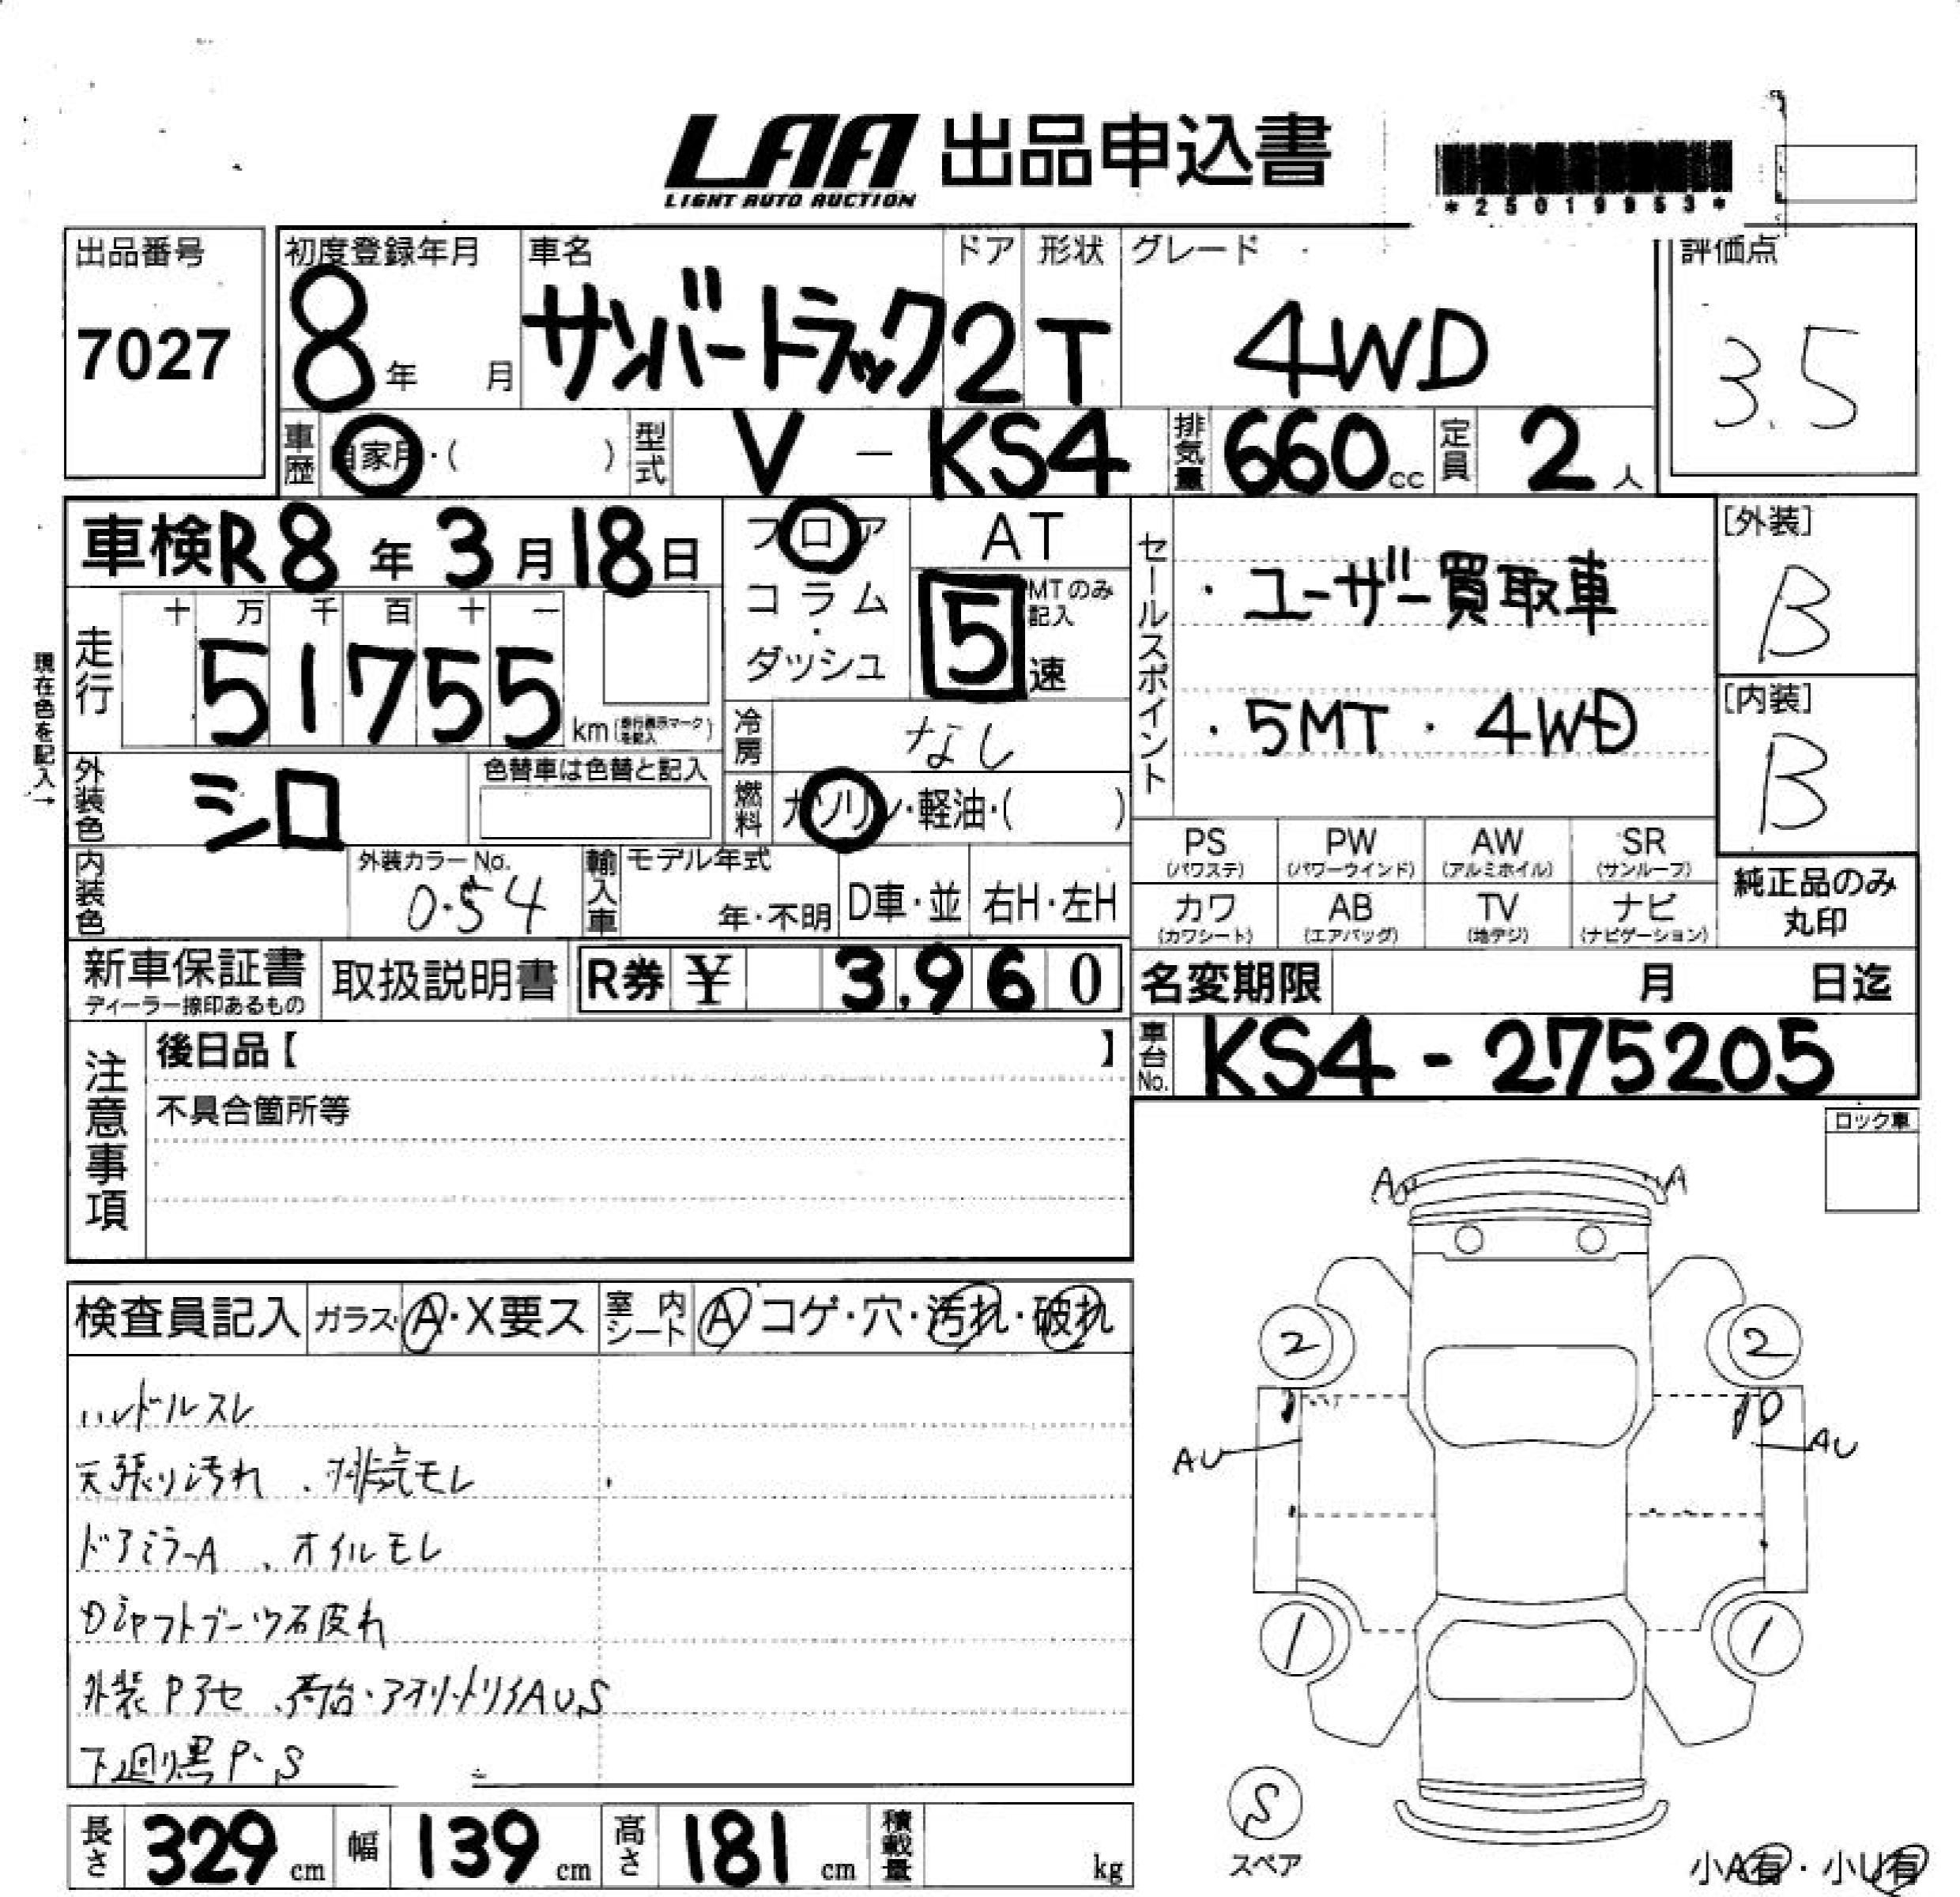 LAA 出品申込書
LIGHT AUTO AUCTION
*25019953*
出品番号
7027
初度登録年月
8年 月
車名
サンバートラック
ドア
2
形状
T
グレード
4WD
評価点
3.5
車歴 自家用・( )
型式 V - KS4
排気量 660cc
定員 2人
車検R8年3月18日
フロア
コラム
・
ダッシュ
AT
5
MTのみ記入
速
セールスポイント
・ユーザー買取車
・5MT・4WD
[外装]
B
[内装]
B
現在色を記入→
走行
十 万 千 百 十 一
51755
km(走行表示マークを記入)
冷房 なし
外装色 シロ
色替車は色替と記入
燃料 ガソリン・軽油・( )
内装色
外装カラーNo.
0.54
輸入車
モデル年式
年・不明
D車・並
右H・左H
PS
(パワステ)
PW
(パワーウインド)
AW
(アルミホイル)
SR
(サンルーフ)
カワ
(カワシート)
AB
(エアバッグ)
TV
(地デジ)
ナビ
(ナビゲーション)
純正品のみ
丸印
新車保証書
ディーラー捺印あるもの
取扱説明書
R券 ¥ 3,960
名変期限 月 日迄
車台No. KS4-275205
注意事項
後日品【 】
不具合箇所等
ロック車
検査員記入
ガラス A・X要ス
室内シート A コゲ・穴・汚れ・破れ
ハンドルスレ
天張り汚れ、排気モレ
ドアミラーA、オイルモレ
Dシャフトブーツ破れ
外装Pアセ、荷台・アオリ・トリイAUS
下廻り黒P、S
A
A
2
2
AU
AU
1
1
S
スペア
小A有・小U有
長さ 329cm
幅 139cm
高さ 181cm
積載量 kg